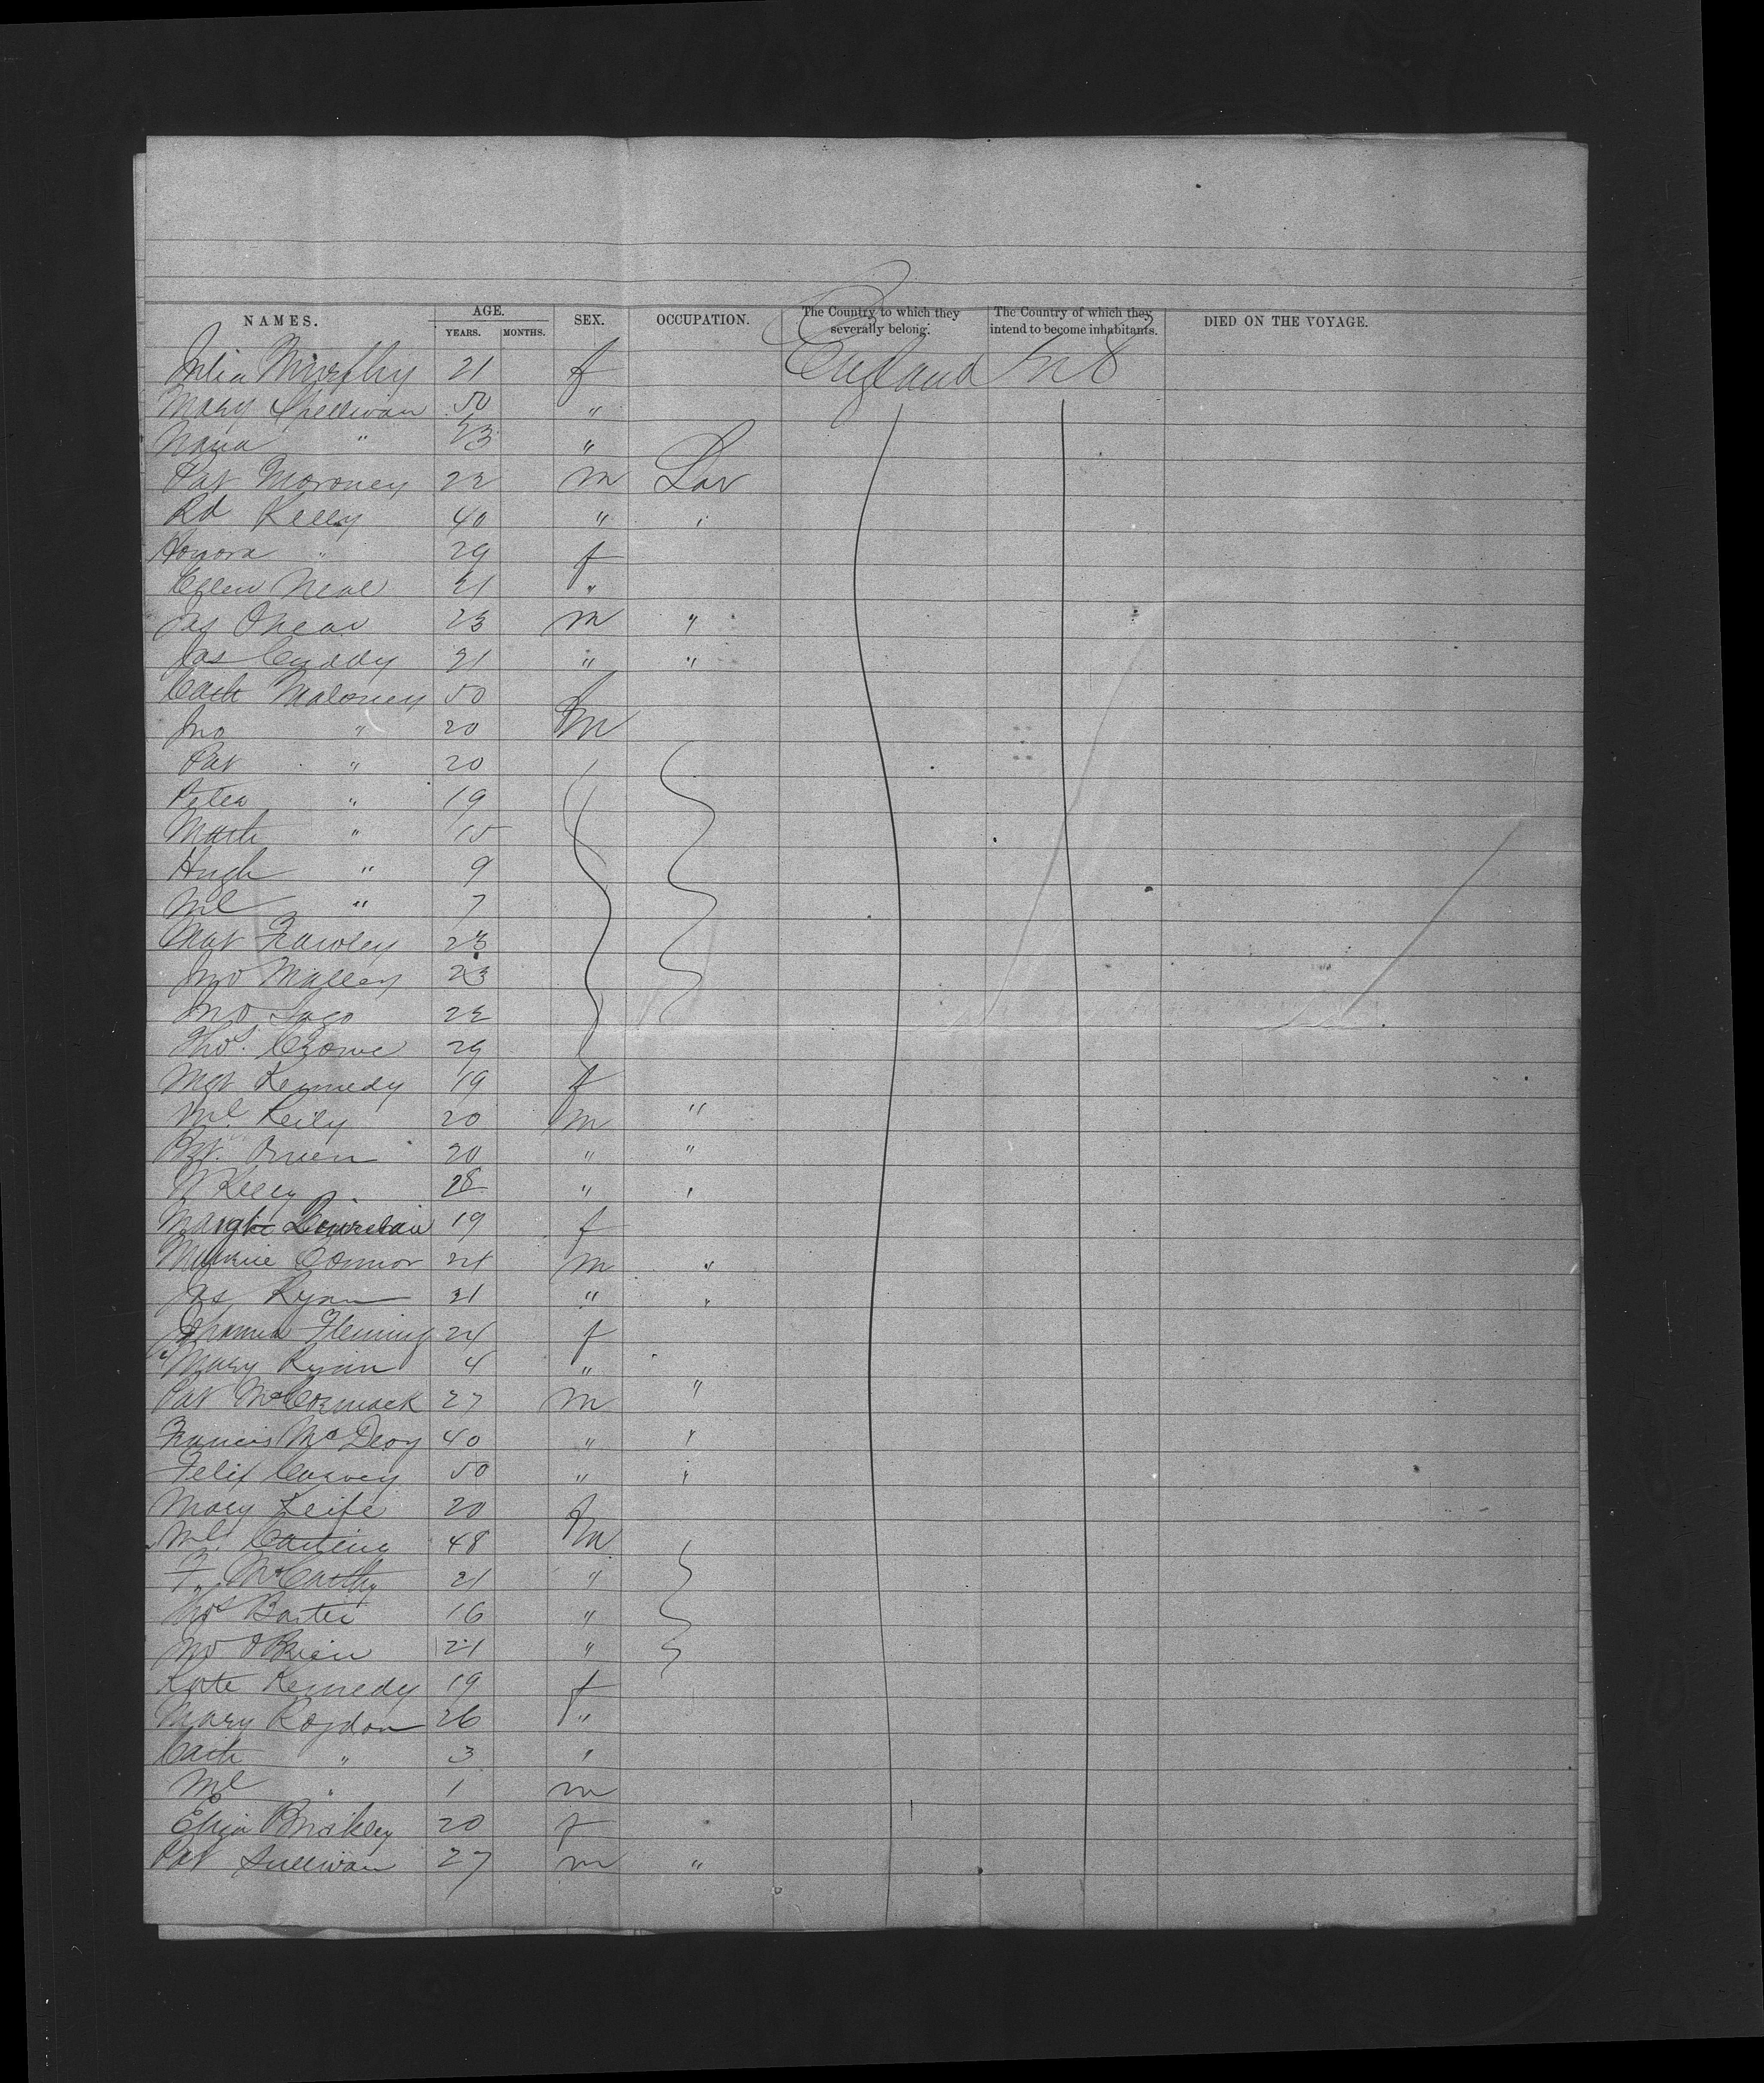 NAMES. AGE. SEX. OCCUPATION. The Country to which they severally belong. The Country of which they intend to become inhabitants. DIED ON THE VOYAGE.
YEARS. MONTHS.
Julia Murphy 21 f England U S
Mary Sullivan 50 "
Nana " 23 "
Pat Moroney 22 m Lav
Rd Kelly 40 " "
Honora " 29 f
Ellen Neal 21 "
Jas 23 m "
Jas Cuddy 21 " "
Cath Maloney 50 f
Jno " 20 m
Pat " 20
Peter " 19
Math " 15
Hugh " 9
Ml " 7
Mat Frawley 23
Jno Malley 23
Jno 22
Thos. Crowe 29
Mgt Kennedy 19 f
Ml. Reily 20 m "
20 " "
Kelly 28 " "
Margt 19 f
Connor 24 m "
Jas Ryan 21 " "
Johanna Fleming 24 f
" Mary Ryan 4 "
Pat McCormack 27 m "
Francis McDeoy 40 " "
Felix Carvey 50 " "
Mary Keife 20 f
Ml. 48 m
F. McCarthy 21 "
Thos Barter 16 "
Jno OBrien 21 "
Kate Kennedy 19 f
Mary Roydon 26 "
Cath " 3 "
Ml " 1 m
Eliza Brickley 20 f
Pat Sullivan 27 m "